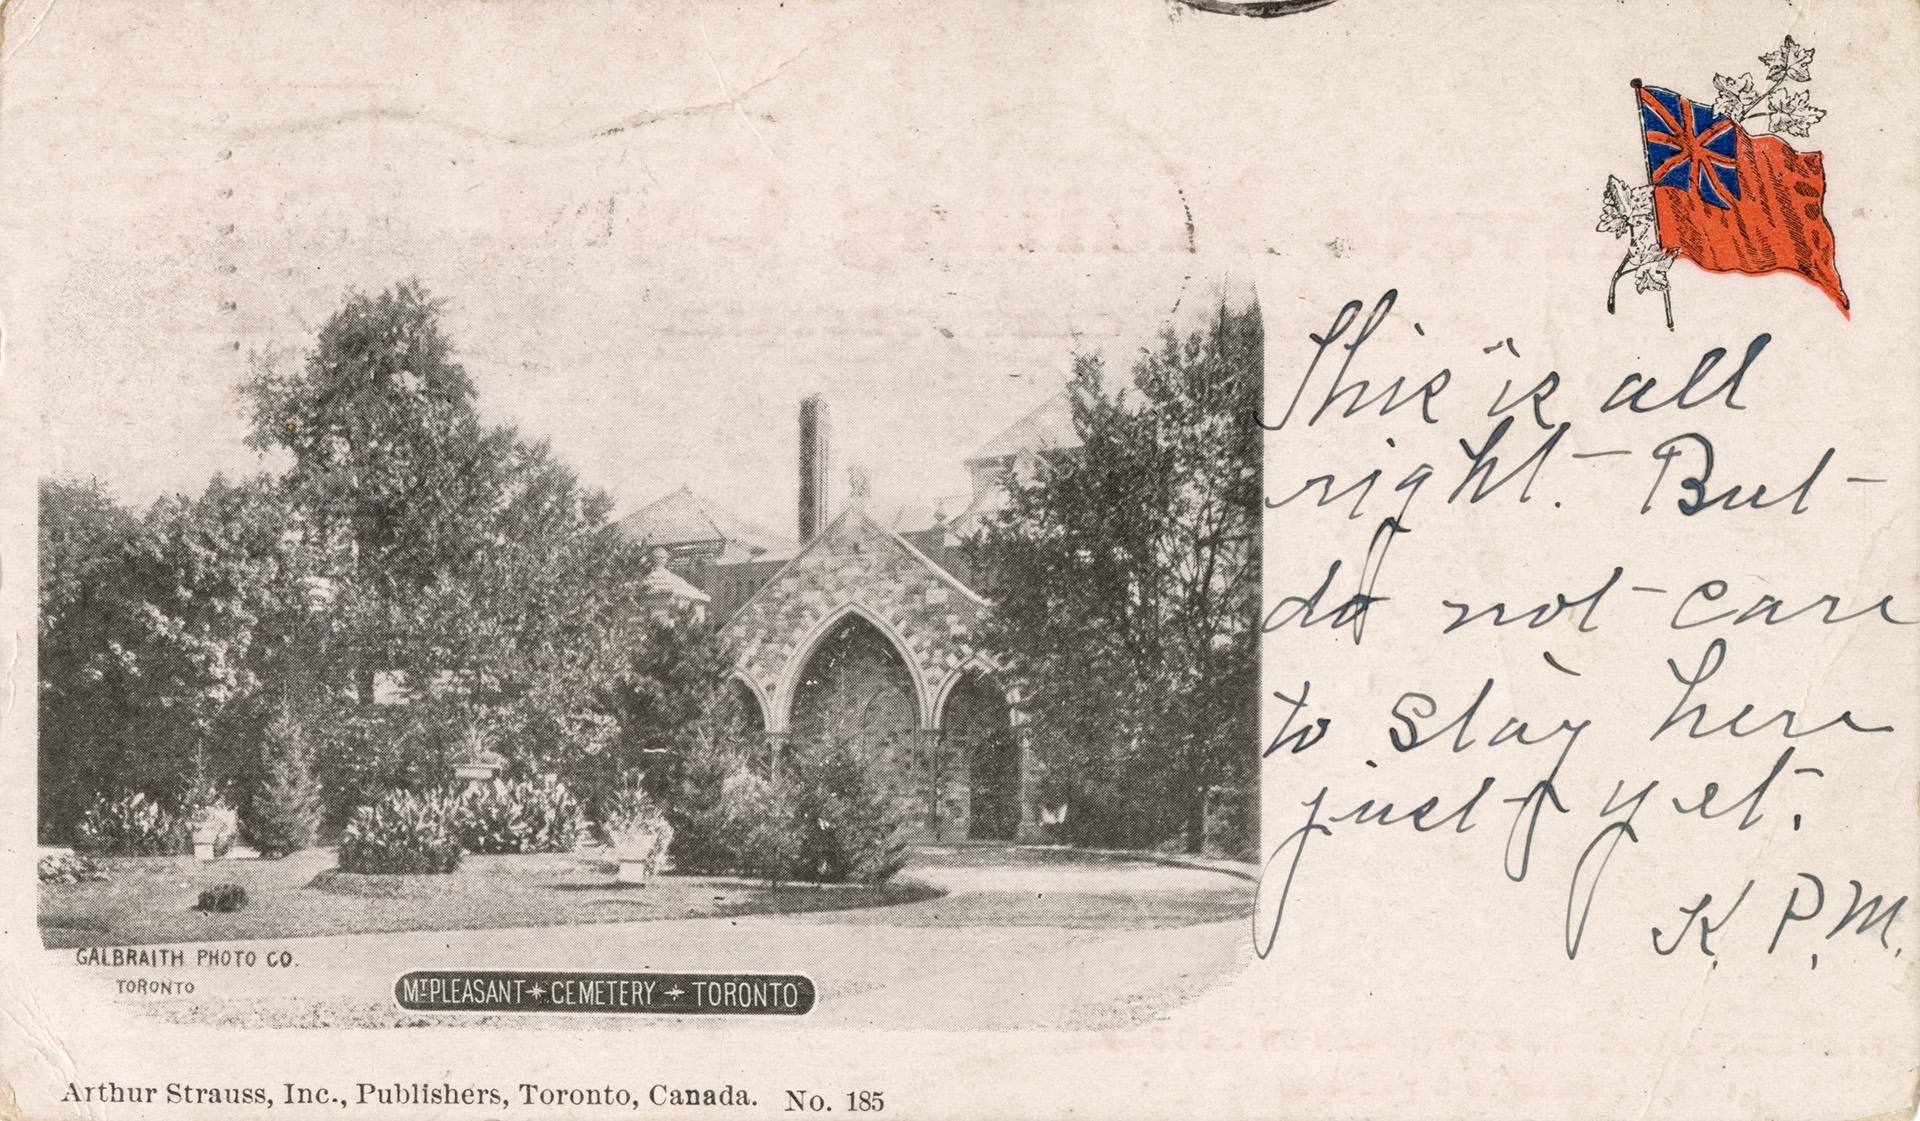 This is all
right. But
do not care
to stay here
just yet.
K. P. M.
GALBRAITH PHOTO CO.
TORONTO
MT PLEASANT CEMETERY TORONTO
Arthur Strauss, Inc., Publishers, Toronto, Canada. No. 185